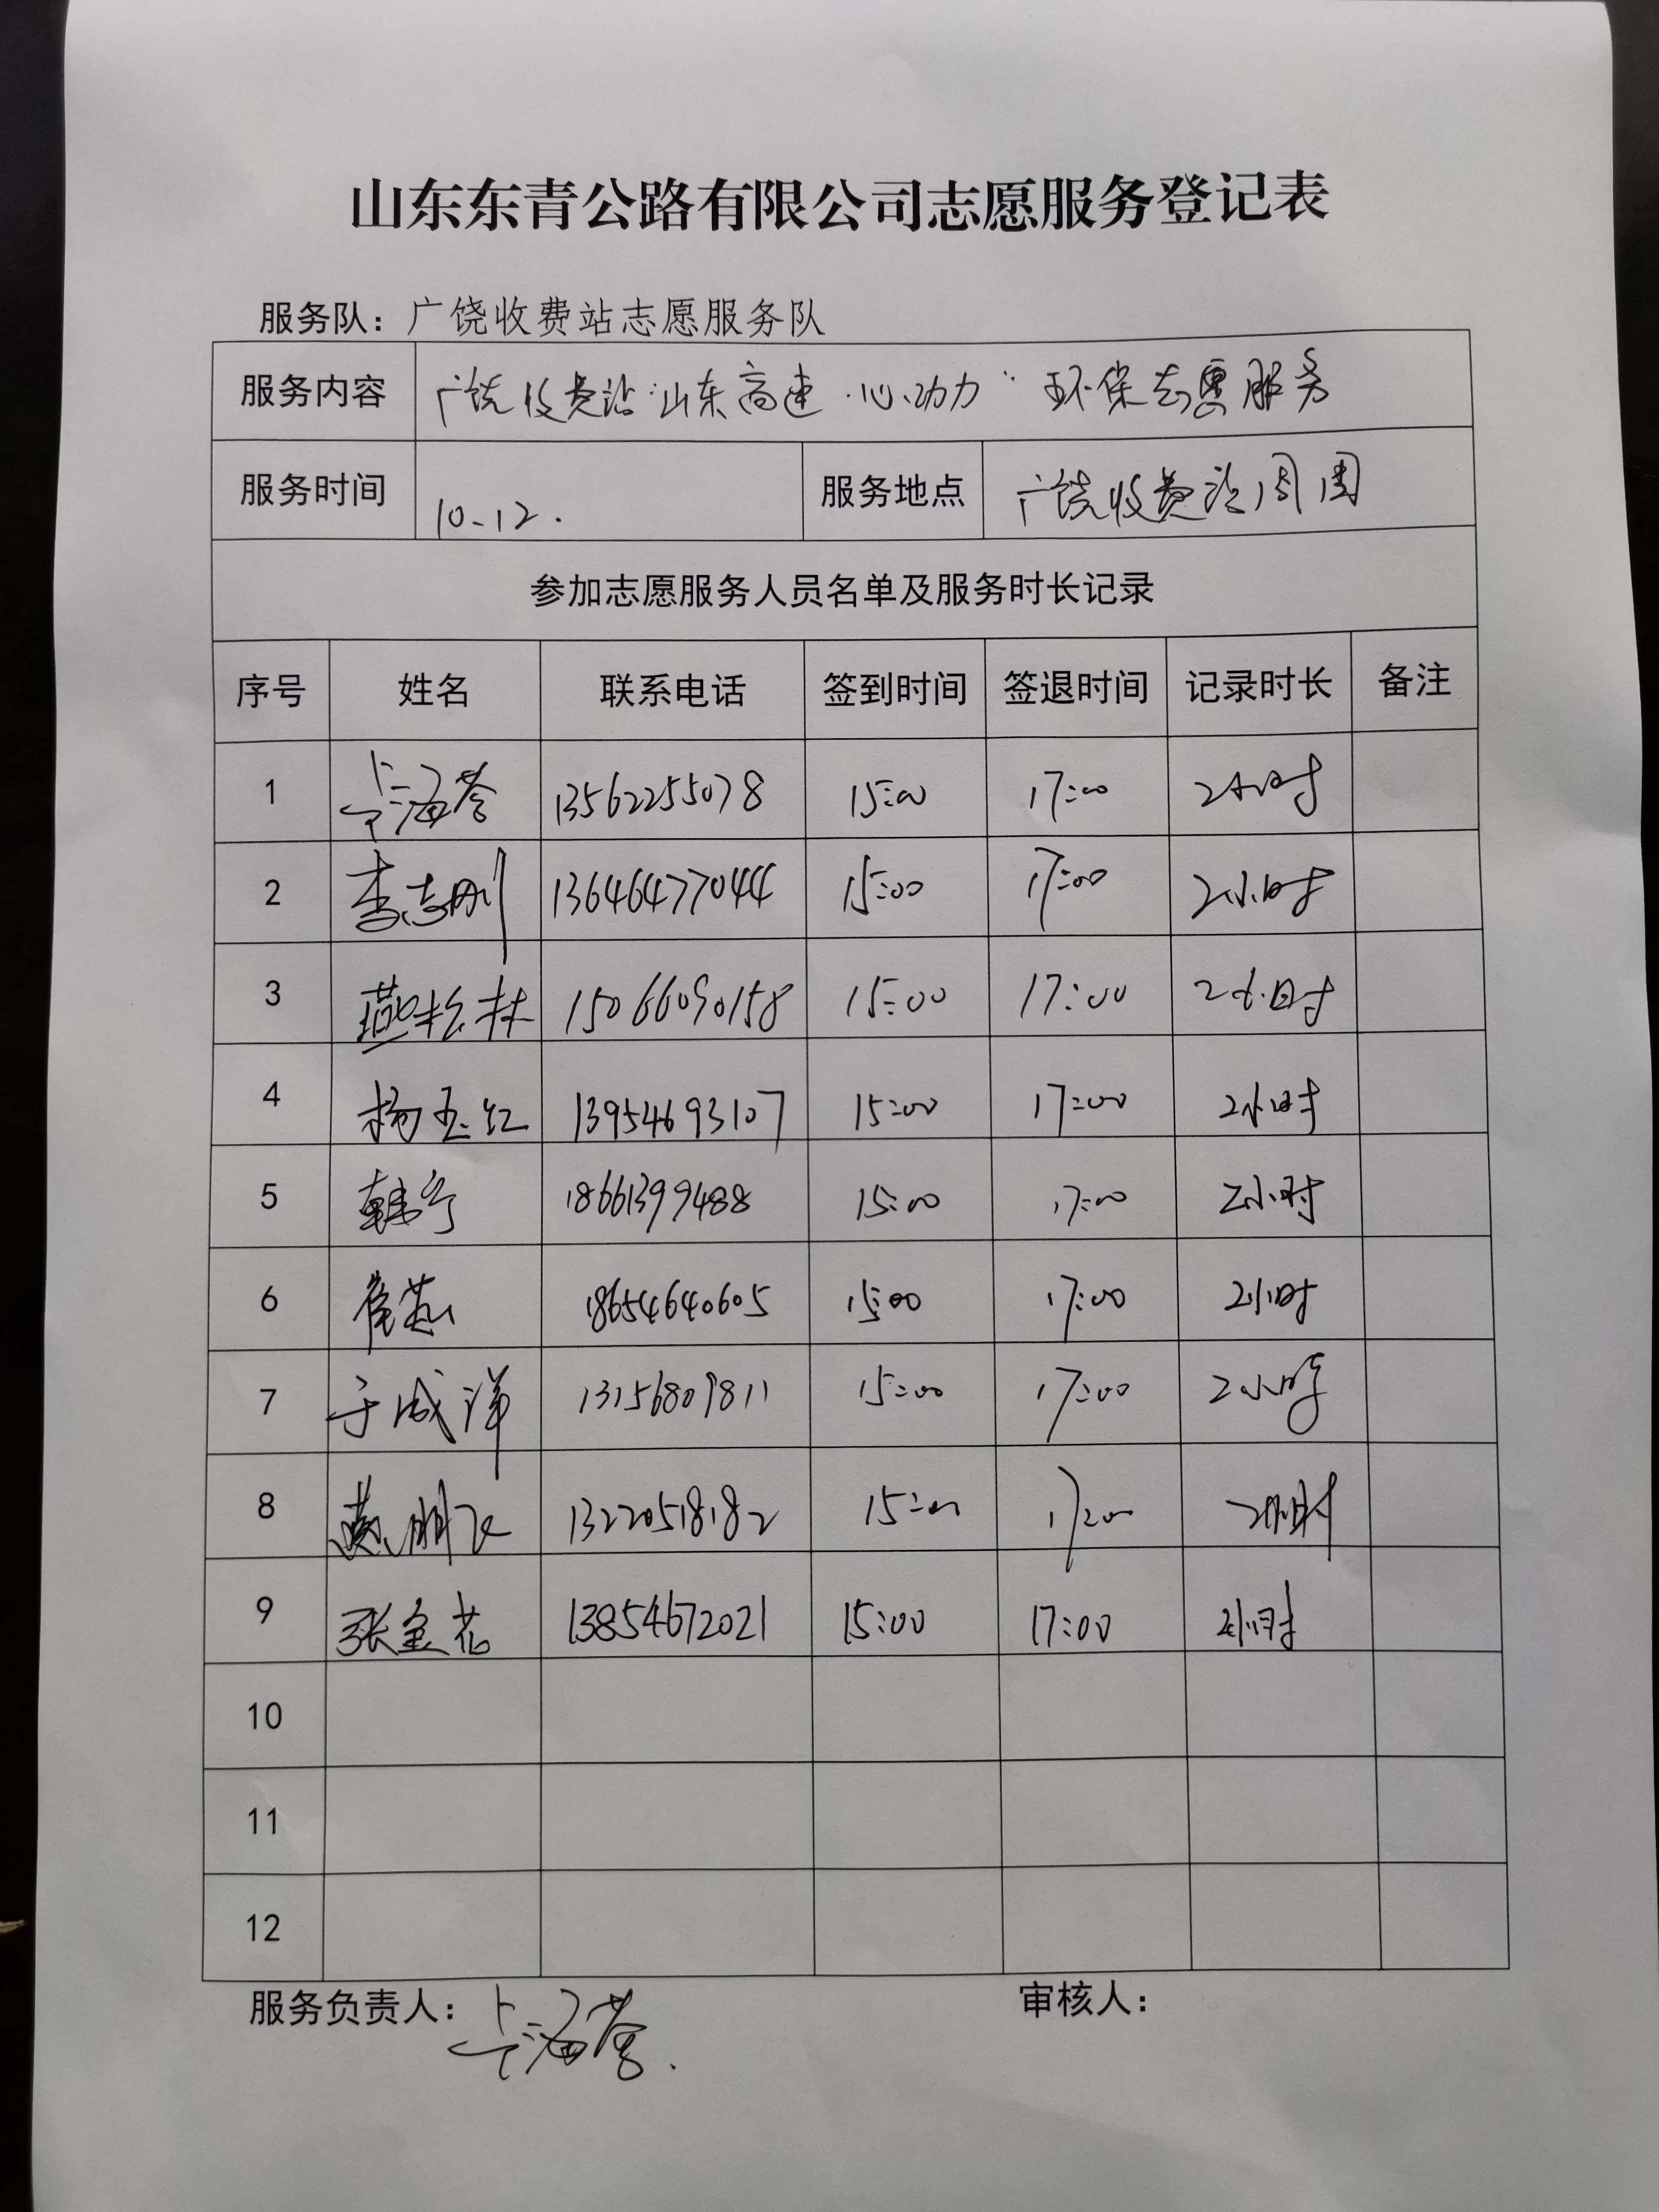 山东东青公路有限公司志愿服务登记表
服务队：广饶收费站志愿服务队
服务内容 广饶收费站“山东高速·心动力”环保志愿服务
服务时间 10-12. 服务地点 广饶收费站周围
参加志愿服务人员名单及服务时长记录
序号 姓名 联系电话 签到时间 签退时间 记录时长 备注
1 13562255078 15:00 17:00 2小时
2 李志刚 13646477044 15:00 17:00 2小时
3 燕松林 15066090158 15:00 17:00 2小时
4 杨玉红 13954693107 15:00 17:00 2小时
5 18661399488 15:00 17:00 2小时
6 崔燕 18654640605 15:00 17:00 2小时
7 于成洋 13156809811 15:00 17:00 2小时
8 13220518182 15:00 17:00 2小时
9 张金花 13854672021 15:00 17:00 2小时
10
11
12
服务负责人： 审核人：